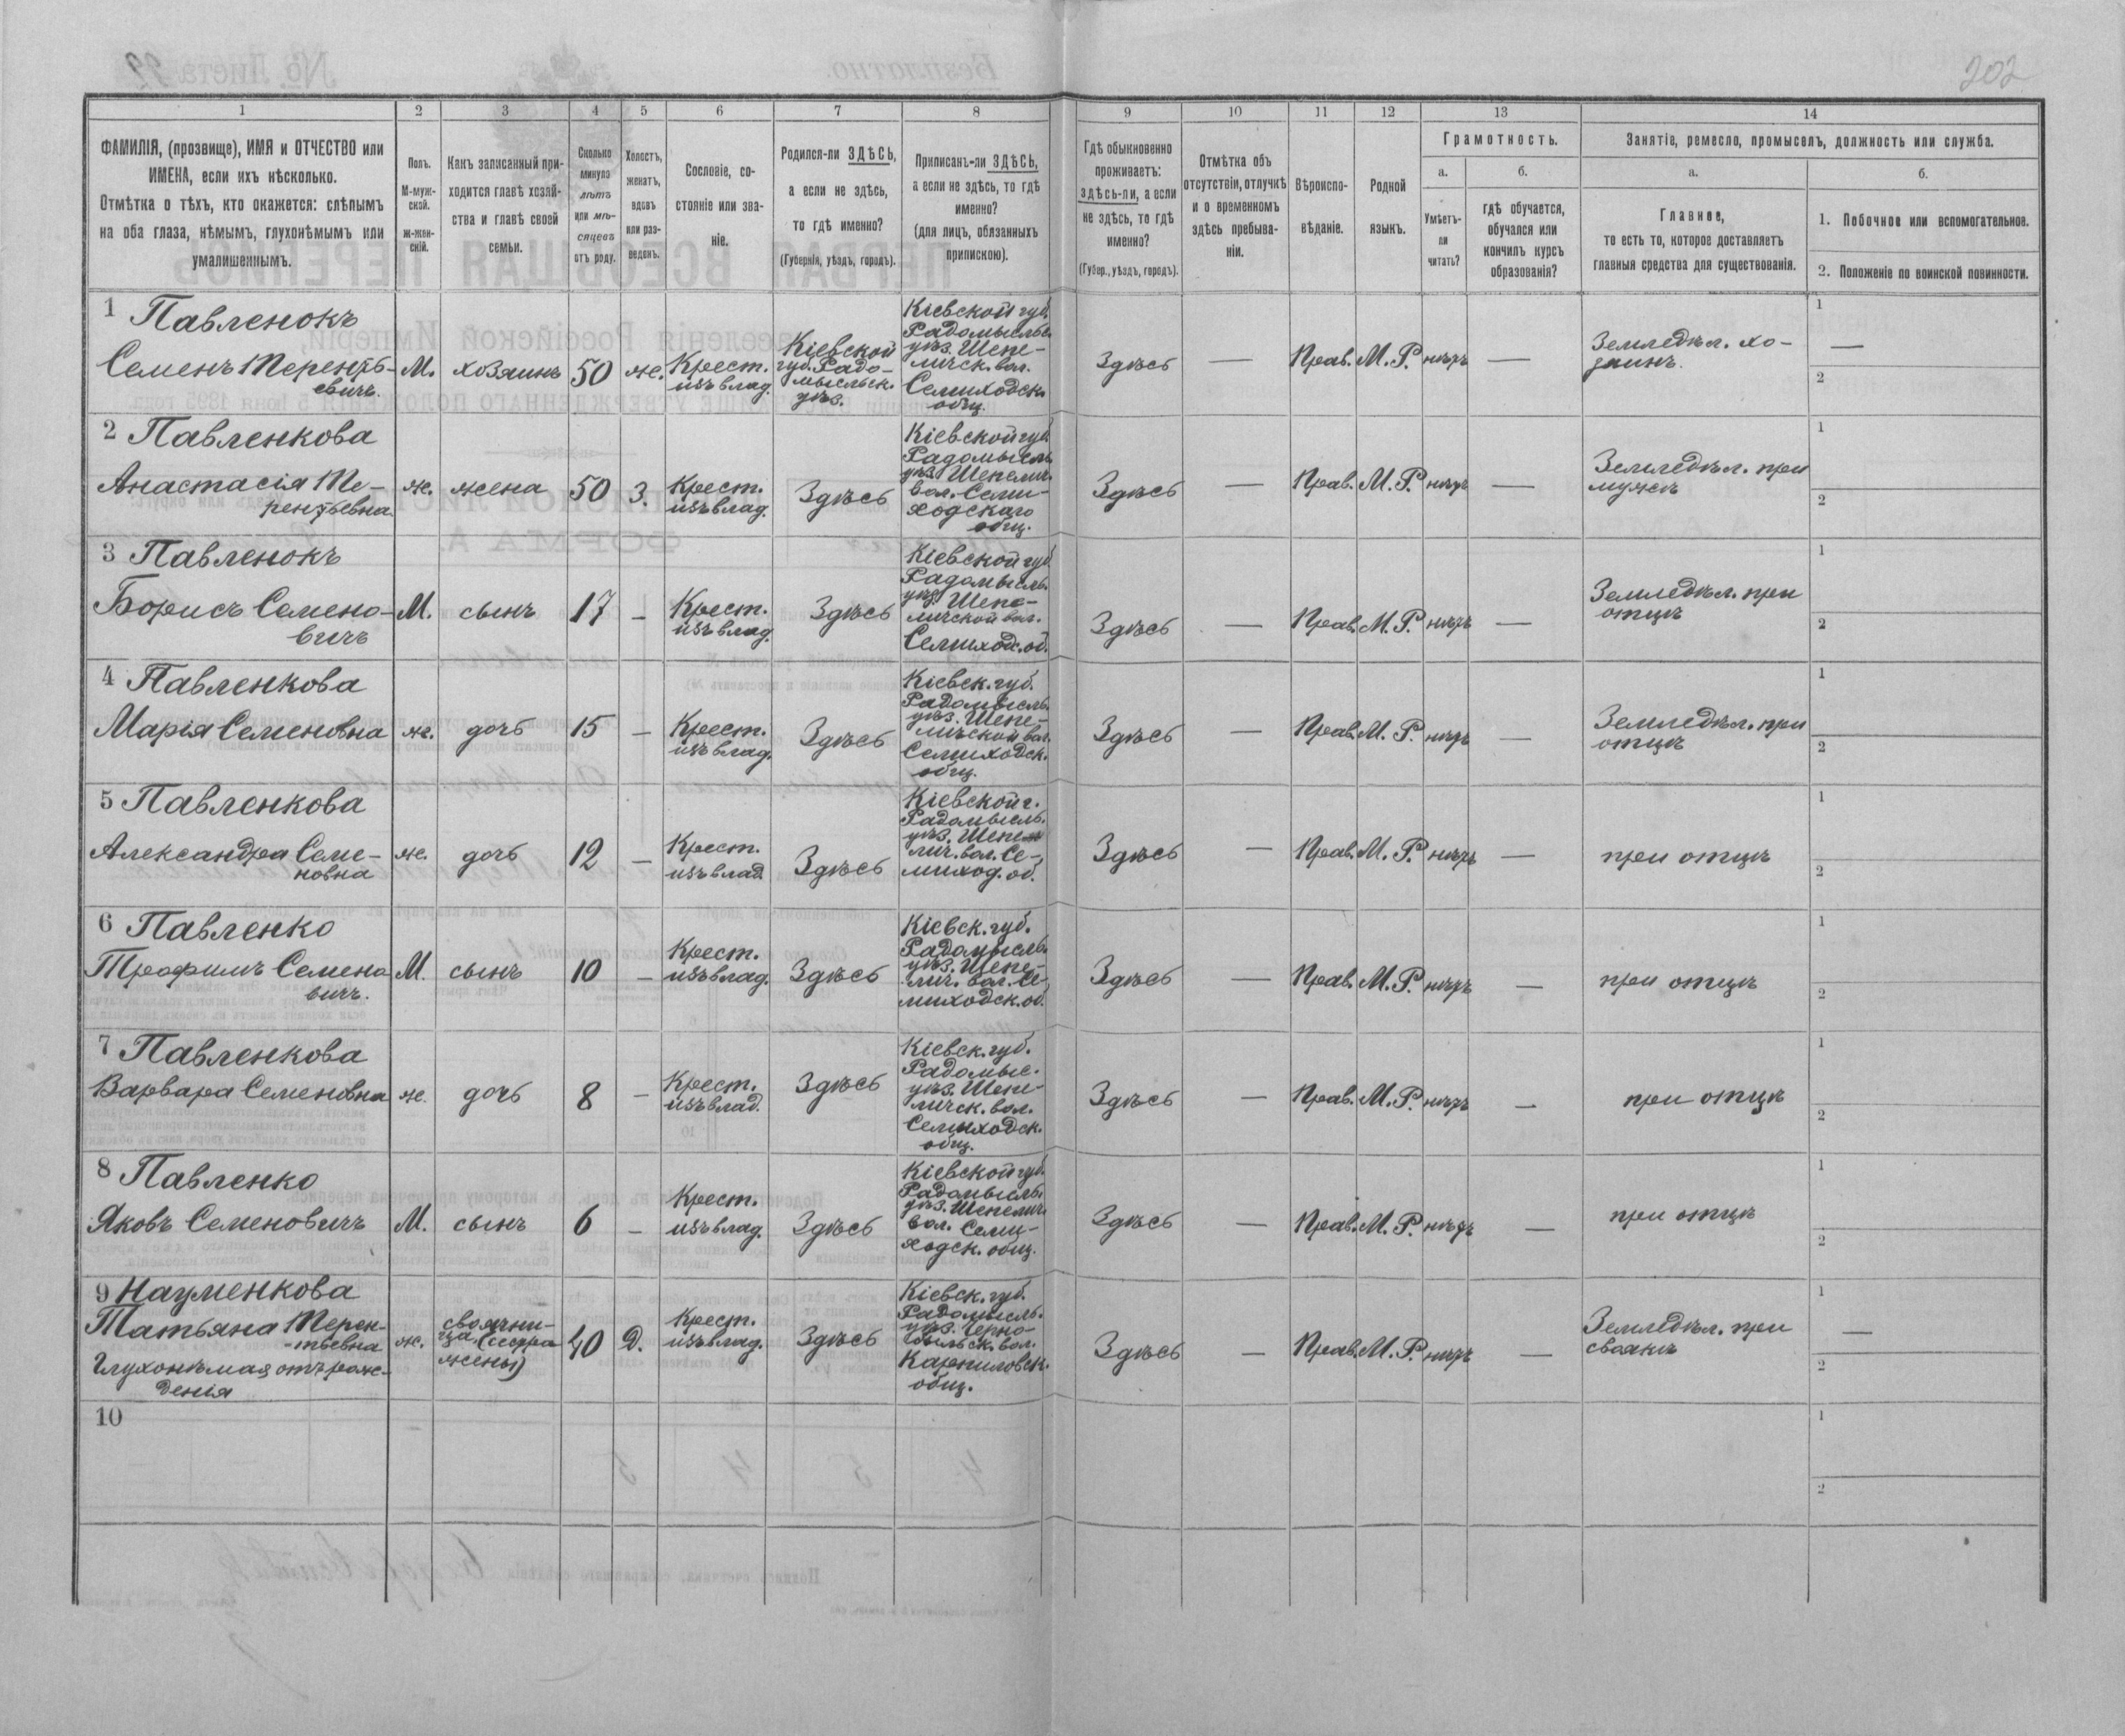 202
1 2 3 4 5 6 7 8 9 10 11 12 13 14
ФАМИЛІЯ, (прозвище), ИМЯ и ОТЧЕСТВО или
ИМЕНА, если ихъ нѣсколько.
Отмѣтка о тѣхъ, кто окажется: слѣпымъ
на оба глаза, нѣмымъ, глухонѣмымъ или
умалишеннымъ.
Полъ.
М-муж-
ской.
Ж-жен-
скій.
Какъ записанный при-
ходится главѣ хозяй-
ства и главѣ своей
семьи.
Сколько
минуло
лѣтъ
или мѣ-
сяцевъ
отъ роду.
Холостъ,
женатъ,
вдовъ
или раз-
веденъ.
Сословіе, со-
стояніе или зва-
ніе.
Родился-ли ЗДѢСЬ,
а если не здѣсь,
то гдѣ именно?
(Губернія, уѣздъ, городъ).
Приписанъ-ли ЗДѢСЬ,
а если не здѣсь, то гдѣ
именно?
(для лицъ, обязанныхъ
припискою).
Гдѣ обыкновенно
проживаетъ:
здѣсь-ли, а если
не здѣсь, то гдѣ
именно?
(Губер., уѣздъ, городъ).
Отмѣтка объ
отсутствіи, отлучкѣ
и о временномъ
здѣсь пребыва-
ніи.
Вѣроиспо-
вѣданіе.
Родной
языкъ.
Грамотность.
а.
Умѣетъ-
ли
читать?
б.
гдѣ обучается,
обучался или
кончилъ курсъ
образованія?
Занятіе, ремесло, промыселъ, должность или служба.
а.
Главное,
то есть то, которое доставляетъ
главныя средства для существованія.
б.
1. Побочное или вспомогательное.
2. Положеніе по воинской повинности.
1 Павленокъ
Семенъ Терентьевичъ
М.
хозяинъ
50
ж.
Крест.
изъ влад.
Кіевской
губ. Радо-
мысльск.
уѣз.
Кіевской губ.
Радомысльс.
уѣз. Шепе-
личск. вол.
Семиходск.
общ.
Здѣсь
—
Прав.
М. Р.
нѣтъ
—
Земледѣл. хо-
зяинъ.
1 —
2
2 Павленкова
Анастасія Те-
рентьевна
ж.
жена
50
З.
Крест.
изъ влад.
Здѣсь
Кіевской губ.
Радомысль.
уѣз. Шепелич.
вол. Семи-
ходскаго
общ.
Здѣсь
—
Прав.
М. Р.
нѣтъ
—
Земледѣл. при
мужѣ
1
2
3 Павленокъ
Борисъ Семено-
вичъ
М.
сынъ
17
—
Крест.
изъ влад.
Здѣсь
Кіевской губ.
Радомысль.
уѣз. Шепе-
личской вол.
Семиход. об.
Здѣсь
—
Прав.
М. Р.
нѣтъ
—
Земледѣл. при
отцѣ
1
2
4 Павленкова
Марія Семеновна
ж.
дочь
15
—
Крест.
изъ влад.
Здѣсь
Кіевск. губ.
Радомысль.
уѣз. Шепе-
личской вол.
Семиходск.
общ.
Здѣсь
—
Прав.
М. Р.
нѣтъ
—
Земледѣл. при
отцѣ
1
2
5 Павленкова
Александра Семе-
новна
ж.
дочь
12
—
Крест.
изъ влад.
Здѣсь
Кіевской г.
Радомысль.
уѣз. Шепе-
лич. вол. Се-
миход. об.
Здѣсь
—
Прав.
М. Р.
нѣтъ
—
при отцѣ
1
2
6 Павленко
Трофимъ Семено
вичъ.
М.
сынъ
10
—
Крест.
изъ влад.
Здѣсь
Кіевск. губ.
Радомысль.
уѣз. Шепе-
лич. вол. Се-
миходск. об.
Здѣсь
—
Прав.
М. Р.
нѣтъ
—
при отцѣ
1
2
7 Павленкова
Варвара Семеновна
ж.
дочь
8
—
Крест.
изъ влад.
Здѣсь
Кіевск. губ.
Радомыс.
уѣз. Шепе-
личск. вол.
Семиходск.
общ.
Здѣсь
—
Прав.
М. Р.
нѣтъ
—
при отцѣ
1
2
8 Павленко
Яковъ Семеновичъ
М.
сынъ
6
—
Крест.
изъ влад.
Здѣсь
Кіевской губ.
Радомысль
уѣз. Шепелич.
вол. Семи-
ходск. общ.
Здѣсь
—
Прав.
М. Р.
нѣтъ
—
при отцѣ
1
2
9 Науменкова
Татьяна Терен-
-тьевна
Глухонѣмая отъ рож-
денія
ж.
своячни-
ца (сестра
жены)
40
Д.
Крест.
изъ влад.
Здѣсь
Кіевск. губ.
Радомысль.
уѣз. Черно-
быльск. вол.
Карпиловск.
общ.
Здѣсь
—
Прав.
М. Р.
нѣтъ
—
Земледѣл. при
своякѣ
1 —
2
10
1
2